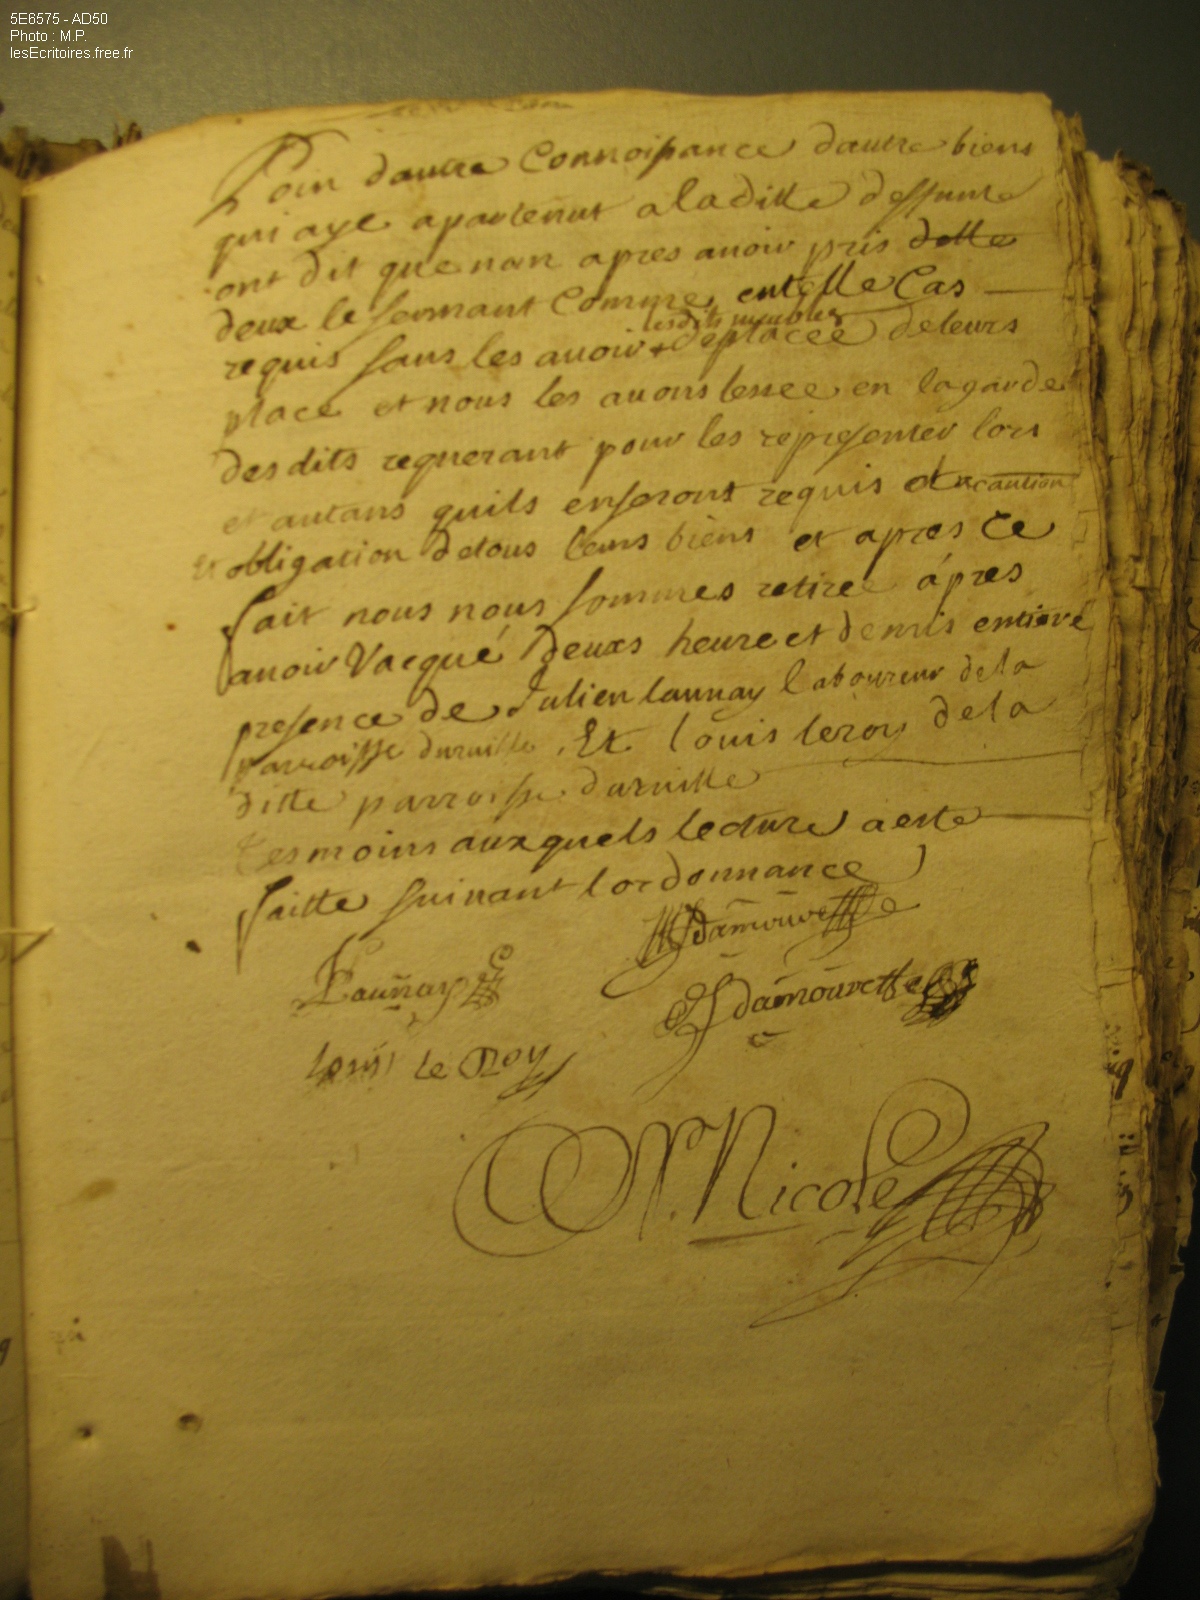 5E6575 - AD50
Photo : M.P.
lesEcritoires.free.fr
Poin dautre Connoissance dautre biens
qui aye apartenut a la ditte deffunte
ont dit que nan apres avoir pris delle
deux le sermant Comme en telle Cas
requis sans les avoir + deplacée de leurs
lesdits meubles
place et nous les avons lessee en la garde
desdits requerant pour les representer lors
et autans quils enseront requis caution
et obligation de tous leurs biens et apres ce
fait nous nous sommes retiree apres
avoir Vacqué deuxs heure et demis
presence de Julien launay laboureur de la
parroisse durville. Et louis leroy de la
ditte parroisse durville
tesmoins auxquels lecture a este
faitte suivant lordonnance
Damourette
Launay
J damourette
louis le Roy
N. Nicole